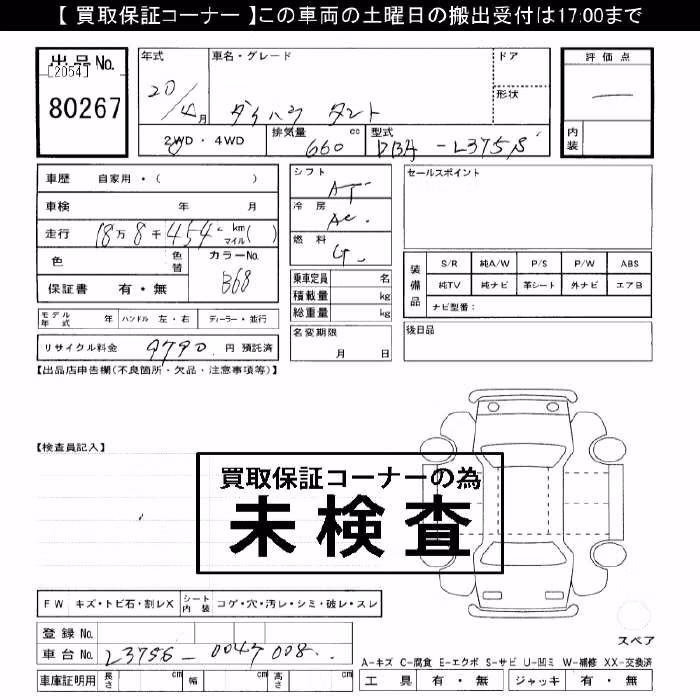 【 買取保証コーナー 】この車両の土曜日の搬出受付は17:00まで
出品No.
[2054]
80267
年式 車名・グレード ドア
20/4月 ダイハツ タント 形状
2WD・4WD 排気量 660 cc 型式 DBA-L375S
評価点
—
内装
車歴 自家用・( )
車検 年 月
走行 18万8千454 km マイル( )
色 色替 カラーNo. B68
保証書 有・無
シフト AT
冷房 AC
燃料 G
乗車定員 名
積載量 kg
総重量 kg
セールスポイント
装備品 S/R 純A/W P/S P/W ABS
純TV 純ナビ 革シート 外ナビ エアB
ナビ型番:
モデル年式 年 ハンドル 左・右 ディーラー・並行
リサイクル料金 9790 円 預託済
名変期限 月 日
後日品
【出品店申告欄(不良箇所・欠品・注意事項等)】
【検査員記入】
買取保証コーナーの為
未検査
FW キズ・トビ石・割レX シート内装 コゲ・穴・汚レ・シミ・破レ・スレ
登録No.
車台No. L375S-0047008
車庫証明用 長さ cm 幅 cm 高さ cm
スペア
A-キズ C-腐食 E-エクボ S-サビ U-凹ミ W-補修 XX-交換済
工具 有・無 ジャッキ 有・無